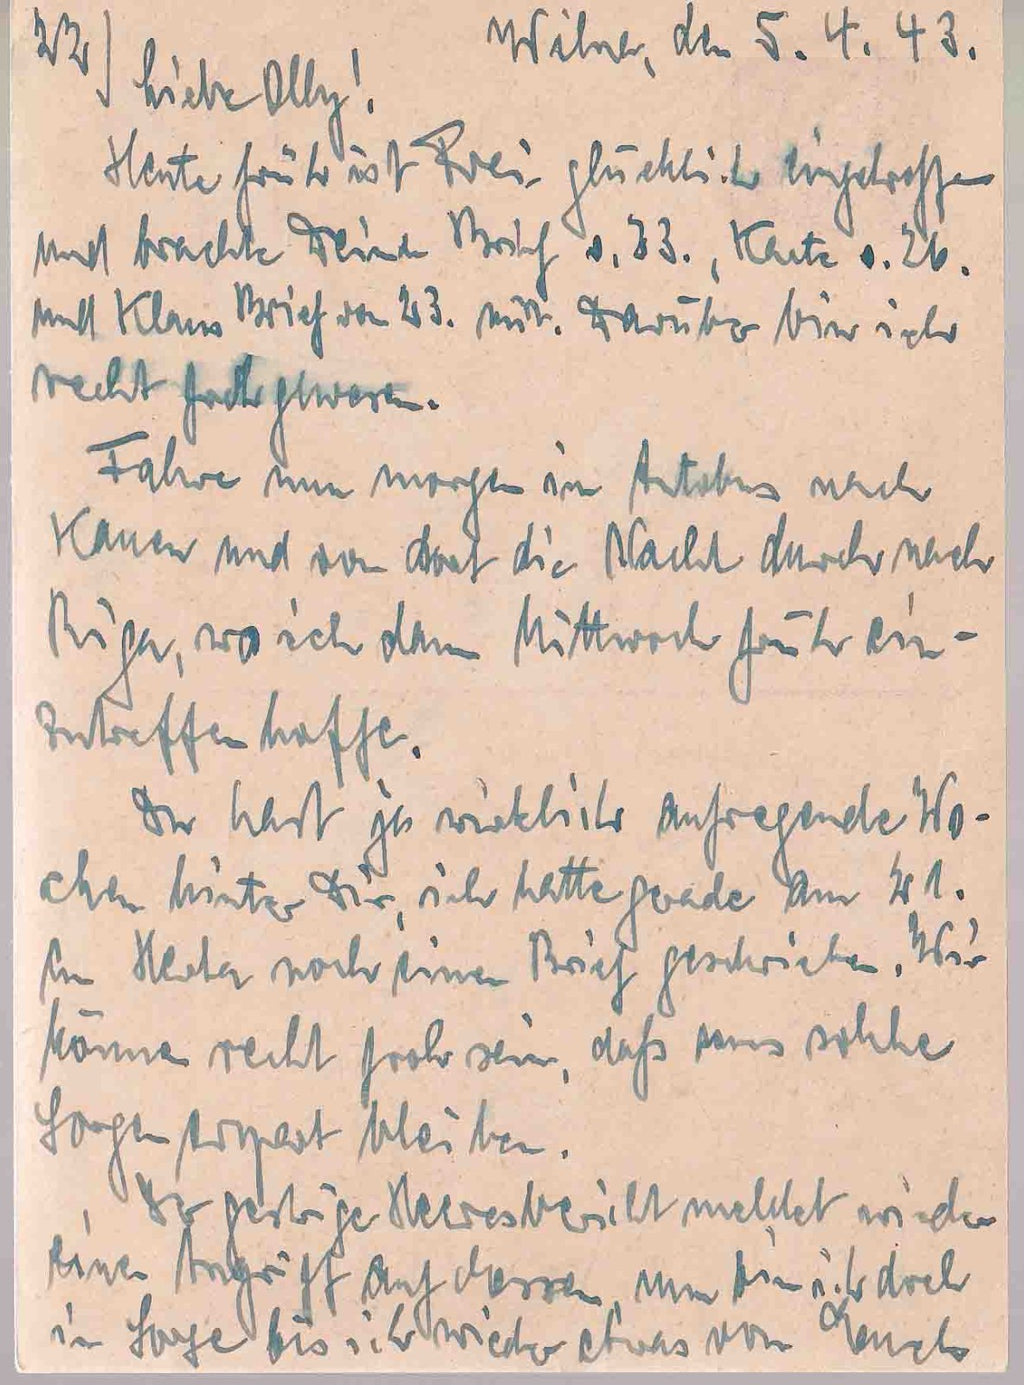 22) Wilna, den 5. 4. 43.
Liebe Olly!
Heute früh ist Frei glücklich eingetroffen
und brachte Deinen Brief v. 23., Karte v. 26.
und Klaus Brief von 23. mit. Darüber bin ich
recht froh gewesen.
Fahre nun morgen im Autobus nach
Kauen und von dort die Nacht durch nach
Riga, wo ich dann Mittwoch früh ein-
zutreffen hoffe.
Du hast ja wirklich aufregende Wo-
chen hinter Dir, ich hatte gerade am 21.
an Herta noch einen Brief geschrieben. Wir
können recht froh sein, daß uns solche
Sorgen erspart bleiben.
Der gestrige Heeresbericht meldet wieder
einen Angriff auf Essen, nun bin ich doch
in Sorge bis ich wieder etwas von